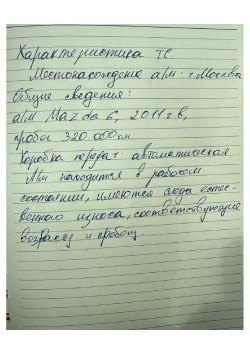 Характеристика ТС
Местонахождение а/м: г. Москва
Общие сведения:
а/м Mazda 6, 2011 г в,
пробег 320.000 км
Коробка передач автоматическая
А/м находится в рабочем
состоянии, имеются следы естес-
венного износа, соответствующие
возрасту и пробегу.